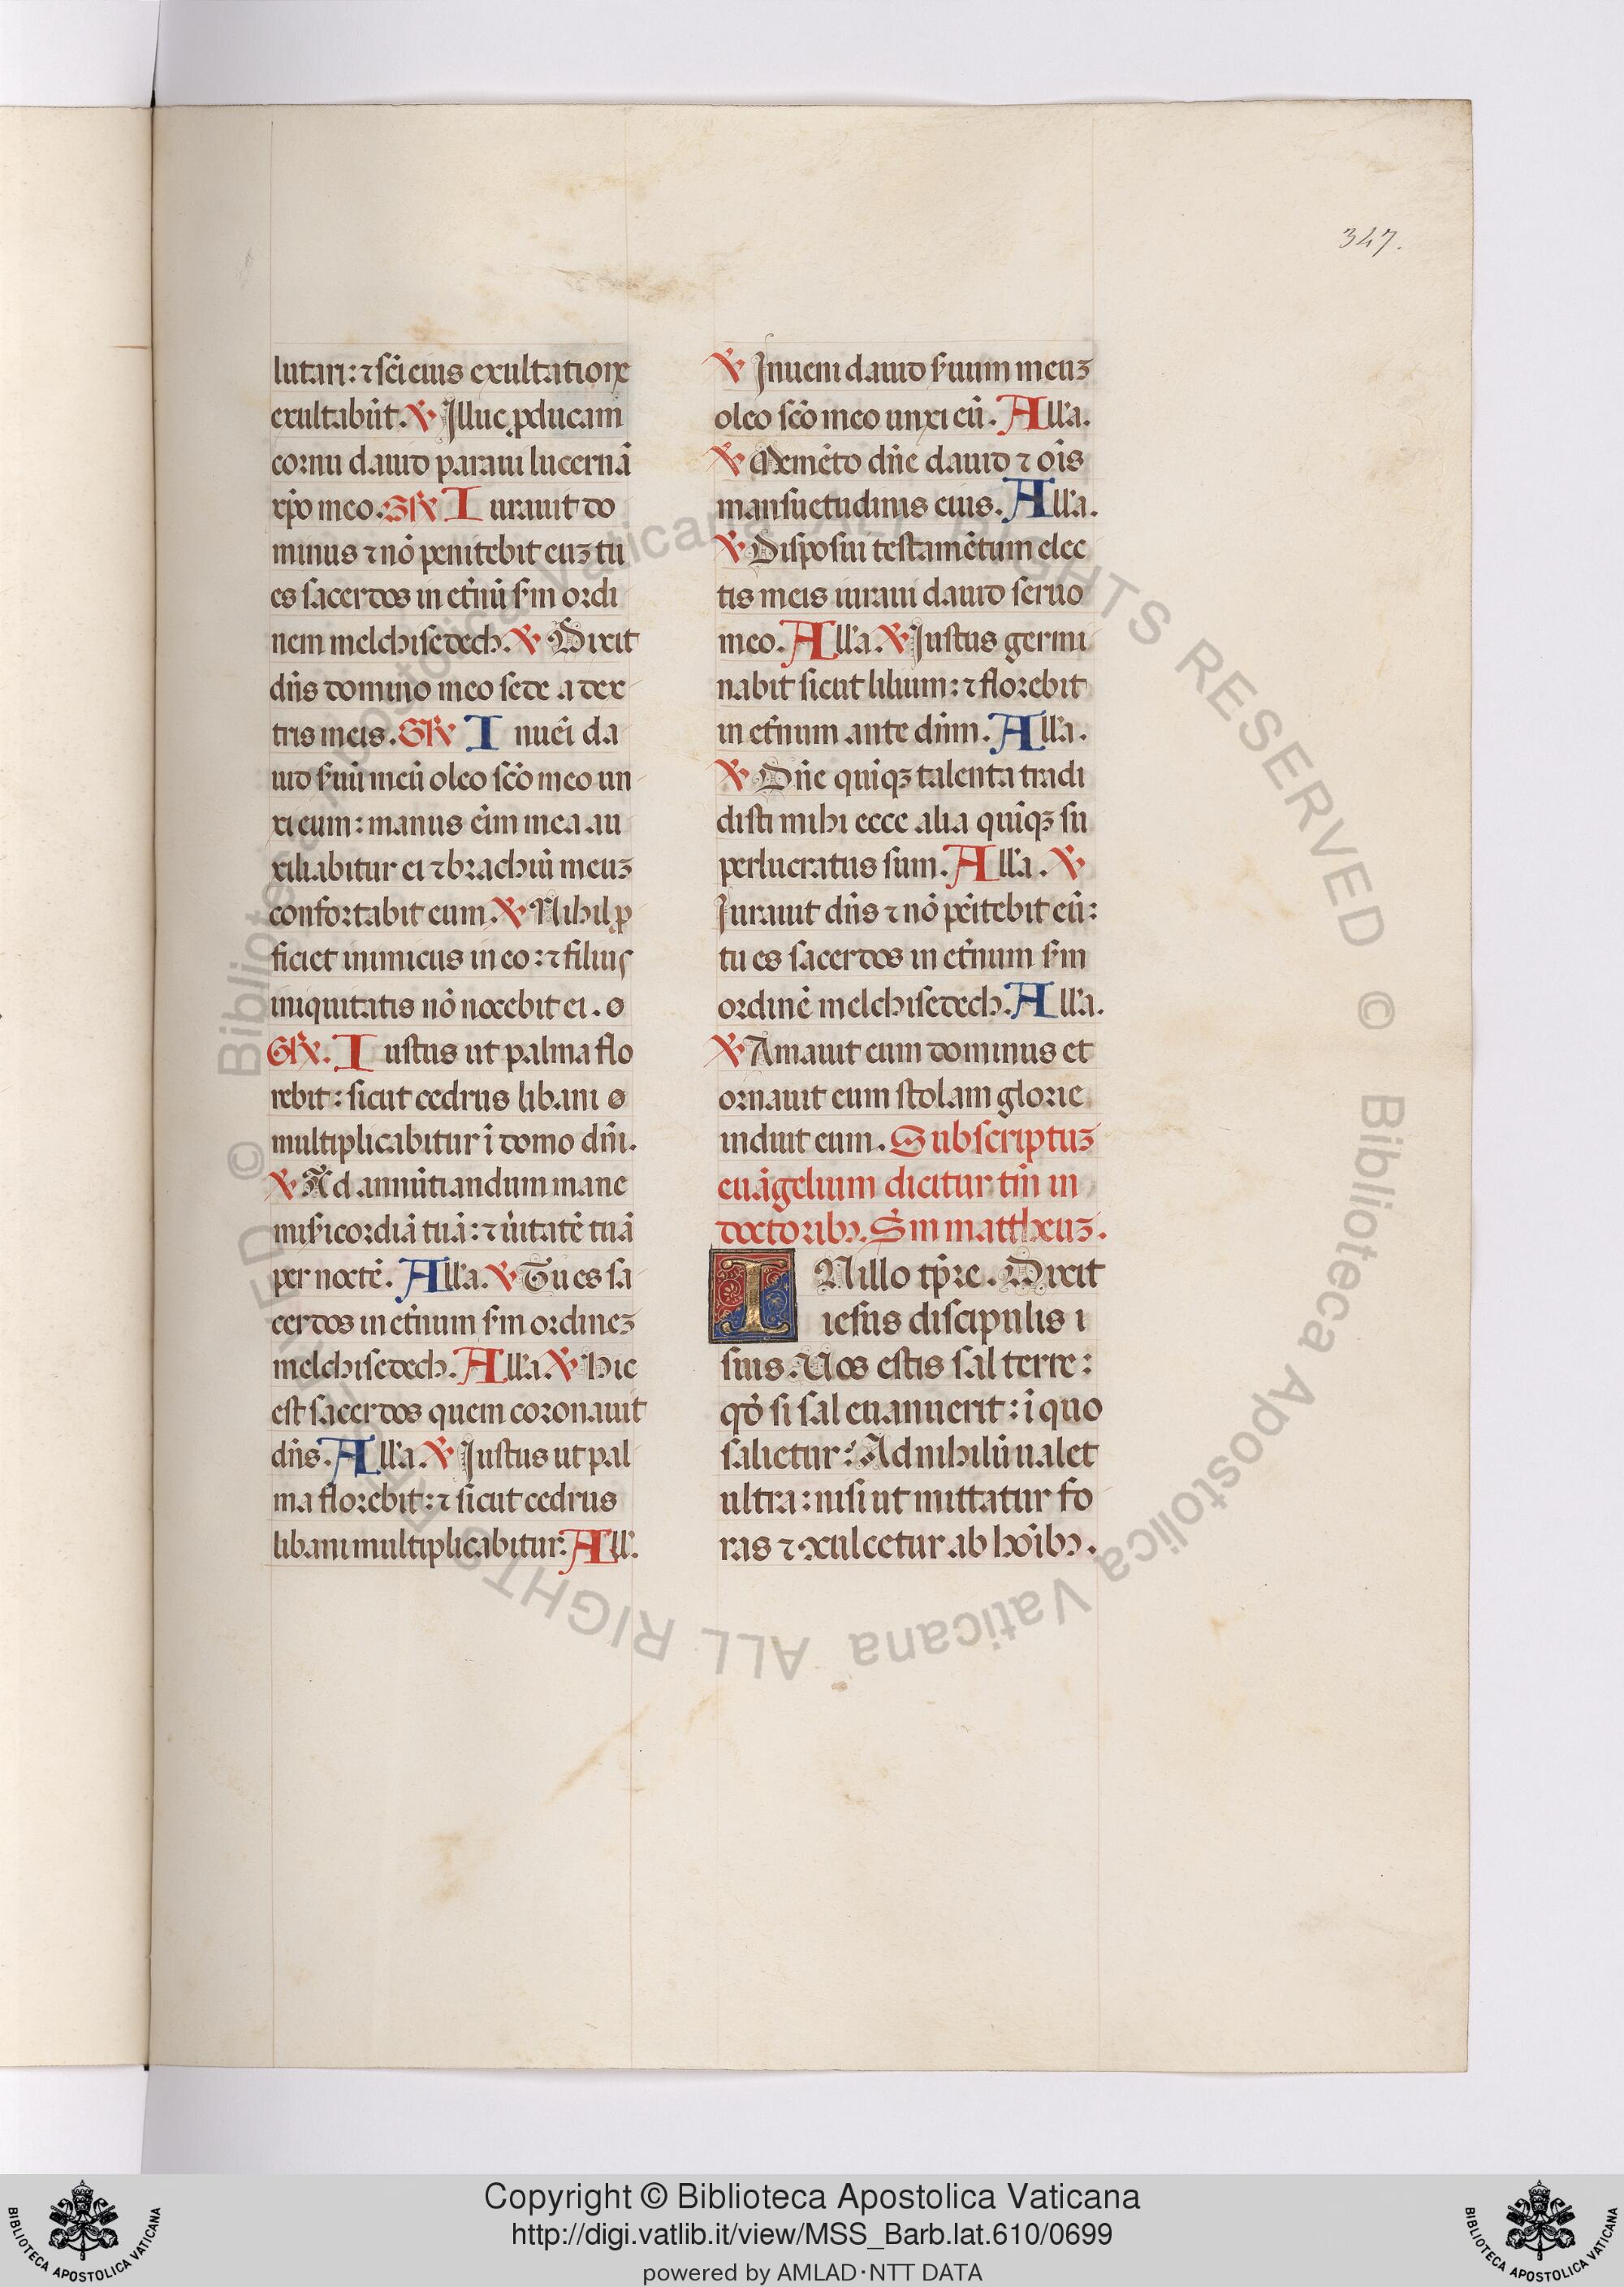 347.
lutari: ⁊ sc̄i eius exultatione
exultabūt. ℣ Illuc ꝓducam
cornu dauid paraui lucernā
xp̄o meo. Gr̄ Iurauit do
minus ⁊ nō penitebit euꝫ tu
es sacerdos in et̄nū s̄m ordi
nem melchisedech. ℣ Dixit
dn̄s domino meo sede a dex
tris meis. Gr̄ Inuēi da
uid s̄uū meū oleo sc̄o meo un
xi eum: manus eīm mea au
xiliabitur ei ⁊ brachiū meuꝫ
confortabit eum. ℣ Nihil ꝓ
ficiet inimicus in eo: ⁊ filius
iniquitatis nō nocebit ei. ø
Gr̄. Iustus ut palma flo
rebit: sicut cedrus libani ø
multiplicabitur ī domo dn̄i.
℣ Ad annūtiandum mane
mis̄icordiā tuā: ⁊ ūitatē tuā
per noctē. All̄a. ℣ Tu es sa
cerdos in et̄num s̄m ordineꝫ
melchisedech. All̄a. ℣ Hic
est sacerdos quem coronauit
dn̄s. All̄a. ℣ Justus ut pal
ma florebit: ⁊ sicut cedrus
libani multiplicabitur: All̄.
℣ Inueni dauid s̄uum meuꝫ
oleo sc̄o meo unxi eū. All̄a.
℣ Memēto dn̄e dauid ⁊ oīs
mansuetudinis eius. All̄a.
℣ Disposui testamētum elec
tis meis iuraui dauid seruo
meo. All̄a. ℣ Justus germi
nabit sicut lilium: ⁊ florebit
in et̄num ante dn̄m. All̄a.
℣ Dn̄e quīqꝫ talenta tradi
disti mihi ecce alia quīqꝫ su
perlucratus sum. All̄a. ℣
Jurauit dn̄s ⁊ nō pēitebit eū:
tu es sacerdos in et̄num s̄m
ordinē melchisedech. All̄a.
℣ Amauit eum dominus et
ornauit eum stolam glorie
induit eum. Subscriptuꝫ
euāgelium dicitur tm̄ in
doctoribꝫ. S̄m mattheuꝫ.
INillo tp̄re. Dixit
iesus discipulis i
suis. Uos estis sal terre:
qd̄ si sal euanuerit: ī quo
salietur? Ad nihilū ualet
ultra: nisi ut mittatur fo
ras ⁊ ꝯculcetur ab hoībꝫ.
Copyright © Biblioteca Apostolica Vaticana
http://digi.vatlib.it/view/MSS_Barb.lat.610/0699
powered by AMLAD·NTT DATA
BIBLIOTECA APOSTOLICA VATICANA
BIBLIOTECA APOSTOLICA VATICANA
© Biblioteca Apostolica Vaticana ALL RIGHTS RESERVED
© Biblioteca Apostolica Vaticana ALL RIGHTS RESERVED